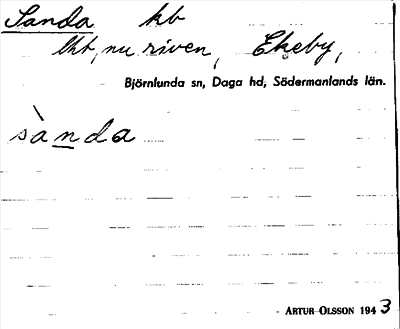 Sanda kb
lht, nu riven, Ekeby,
Björnlunda sn, Daga hd, Södermanlands län.
sànda
ARTUR OLSSON 1943